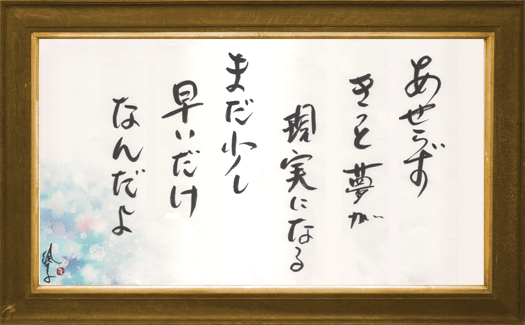 あせらず
きっと夢が
現実になる
まだ少し
早いだけ
なんだよ